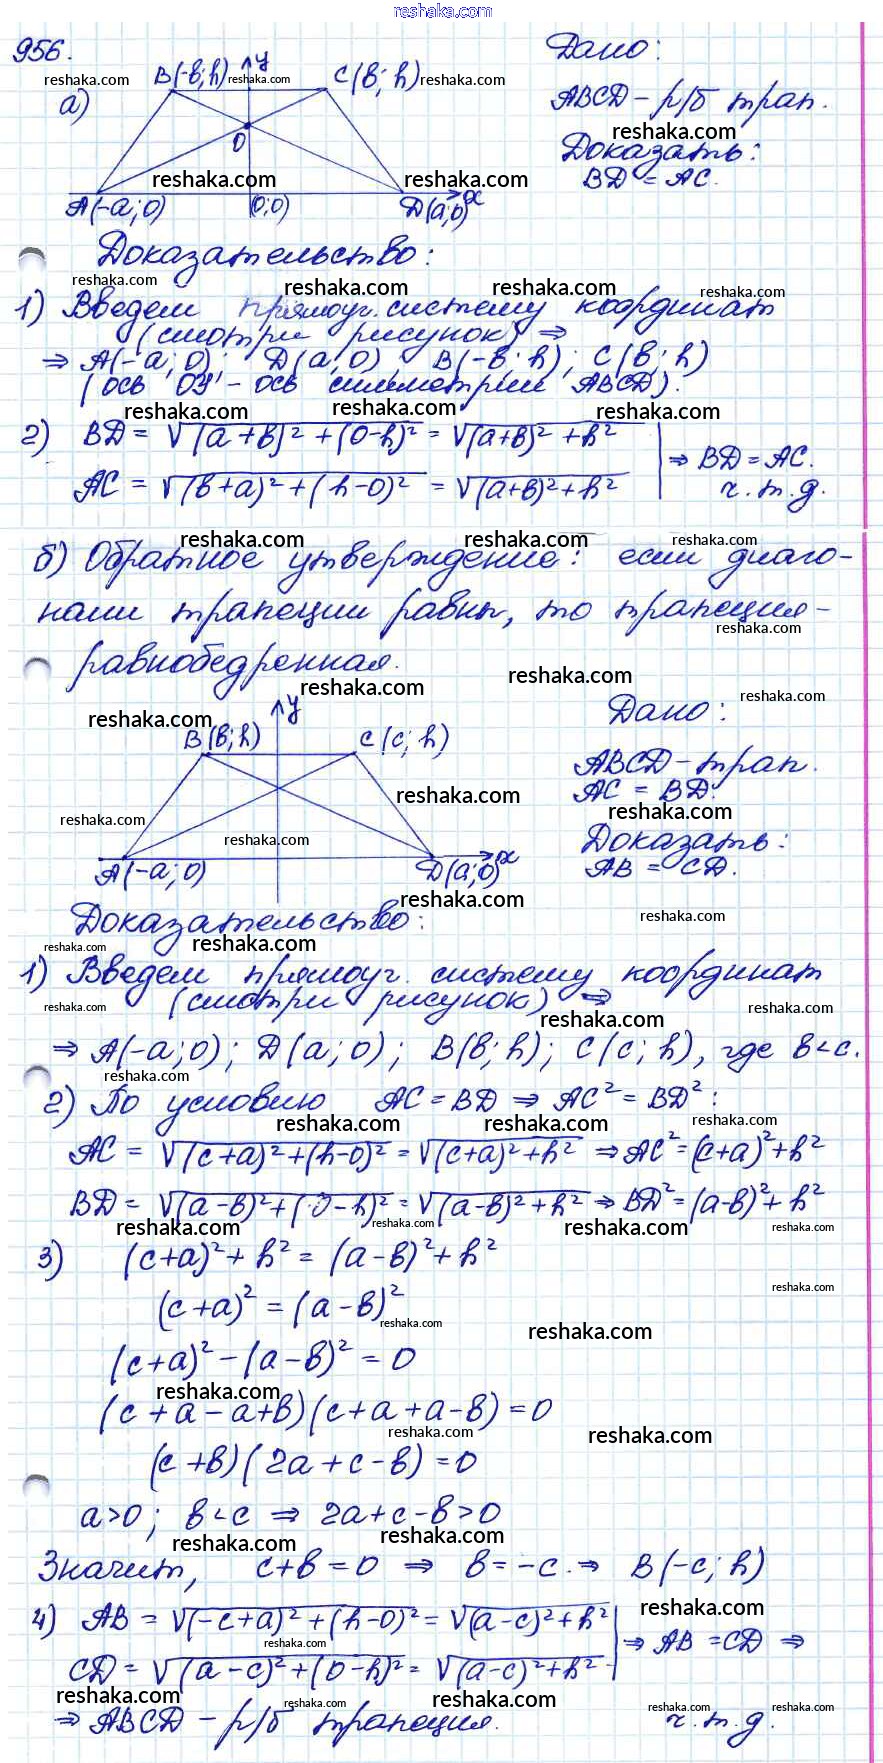 reshaka.com
956.
а)
B(-в; h) y C(в; h)
O
A(-a; 0) (0;0) D(a;0) x
Дано:
ABCD - р/б трап.
Доказать:
BD = AC.
Доказательство:
1) Введем прямоуг. систему координат
(смотри рисунок) ⇒
⇒ A(-a; 0); D(a; 0), B(-в; h); C(в; h)
(ось ОУ - ось симметрии ABCD).
2) BD = √(a+в)² + (0-h)² = √(a+в)² + h²
AC = √(в+a)² + (h-0)² = √(a+в)² + h²
⇒ BD = AC.
ч.т.д.
б) Обратное утверждение: если диаго-
нали трапеции равны, то трапеция -
равнобедренная.
B(в; h) y C(c; h)
A(-a; 0) D(a; 0) x
Дано:
ABCD - трап.
AC = BD.
Доказать:
AB = CD.
Доказательство:
1) Введем прямоуг. систему координат
(смотри рисунок) ⇒
⇒ A(-a; 0); D(a; 0); B(в; h); C(c; h), где в<c.
2) По условию AC = BD ⇒ AC² = BD²:
AC = √(c+a)² + (h-0)² = √(c+a)² + h² ⇒ AC² = (c+a)² + h²
BD = √(a-в)² + (0-h)² = √(a-в)² + h² ⇒ BD² = (a-в)² + h²
3) (c+a)² + h² = (a-в)² + h²
(c+a)² = (a-в)²
(c+a)² - (a-в)² = 0
(c+a-a+в)(c+a+a-в) = 0
(c+в)(2a+c-в) = 0
a>0; в<c ⇒ 2a+c-в>0
Значит, c+в = 0 ⇒ в = -c. ⇒ B(-c; h)
4) AB = √(-c+a)² + (h-0)² = √(a-c)² + h²
CD = √(a-c)² + (0-h)² = √(a-c)² + h²
⇒ AB = CD ⇒
⇒ ABCD - р/б трапеция. ч.т.д.